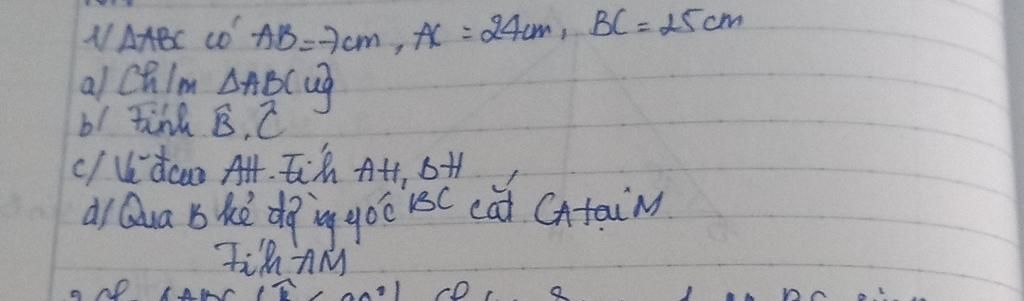 1/ ΔABC có AB=7cm, AC = 24cm, BC = 25cm
a/ Ch/m ΔABC vg
b/ Tính B̂, Ĉ
c/ Vẽ đcao AH. Tính AH, BH
d/ Qua B kẻ đg vg góc BC cắt CA tại M.
Tính AM